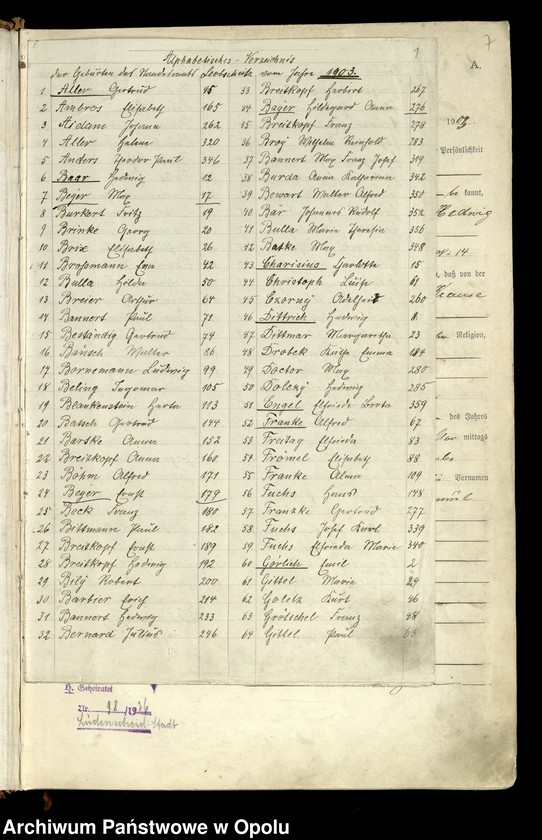 7
1
A.
Alphabetisches-Verzeichnis
der Geburten des Standesamts Leobschütz vom Jahre 1903.
1 Aller Gertrud 45
2 Ambros Elisabeth 165
3 Aidam Johann 262
4 Aller Helene 320
5 Anders Theodor Paul 346
6 Baar Hedwig 12
7 Beyer Max 17
8 Burkert Fritz 19
9 Brinke Georg 20
10 Brix Elisabeth 26
11 Broßmann Eva 42
12 Bulla Hilda 50
13 Breier Arthur 64
14 Bannert Paul 71
15 Beständig Gertrud 74
16 Bansch Walter 86
17 Bornemann Ludwig 99
18 Beling Ingomar 105
19 Blankenstein Herta 113
20 Batsch Gertrud 144
21 Bartke Anna 152
22 Breitkopf Anna 160
23 Böhm Alfred 171
24 Beyer Ernst 179
25 Beck Franz 180
26 Bittmann Paul 182
27 Breitkopf Ernst 189
28 Breitkopf Hedwig 192
29 Bilý Robert 200
30 Barbier Erich 214
31 Bannert Hedwig 233
32 Bernard Julius 246
33 Breitkopf Herbert 267
34 Bayer Hildegard Anna 276
35 Breitkopf Franz 278
36 Broy Wilhelm Reinhold 283
37 Bannert Max Franz Josef 314
38 Burda Anna Katharina 342
39 Bewart Walter Alfred 350
40 Bär Johannes Rudolf 352
41 Bulla Maria Theresia 356
42 Batke Max 348
43 Charisius Charlotte 15
44 Christoph Luise 61
45 Czorny Adelheid 260
46 Dittrich Hedwig 8
47 Dittmar Margarethe 23
48 Drobek Luise Emma 184
49 Doctor Max 280
50 Dolezy Hedwig 285
51 Engel Elfriede Berta 359
52 Franke Alfred 67
53 Freitag Elfrieda 83
54 Frömel Elisabeth 88
55 Franke Alma 109
56 Fuchs Hans 148
57 Franzke Gertrud 277
58 Fuchs Josef Karl 339
59 Fuchs Elfrieda Maria 340
60 Görlich Emil 2
61 Gittel Maria 29
62 Goletz Kurt 46
63 Grötschel Franz 48
64 Gittel Paul 63
1903
Persönlichkeit
kannt,
Hedwig
daß von der
Krause
Religion,
des Jahres
mittags
Vornamen
H. Geheiratet
Nr. 98 /1936
Lüdenscheid-Stadt
Archiwum Państwowe w Opolu